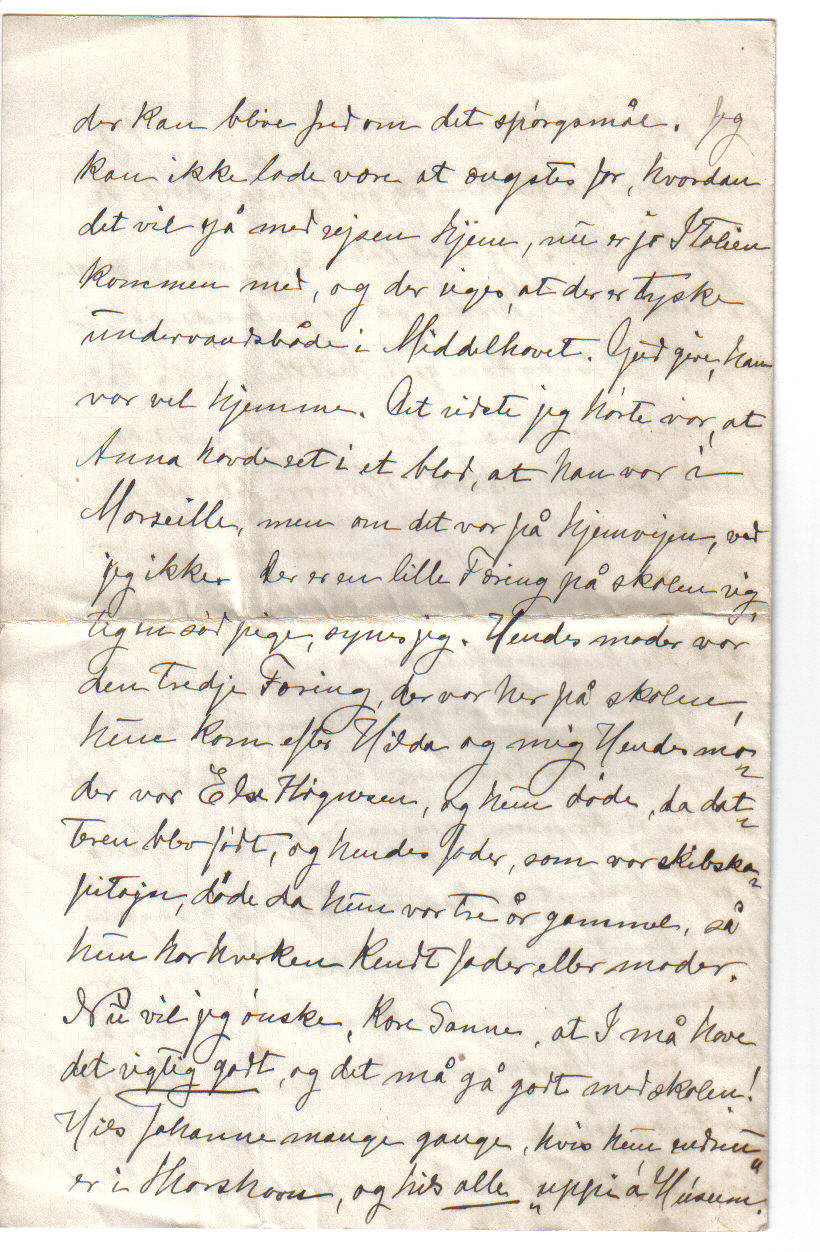 der kan blive fred om det spórgsmål. Jeg
kan ikke lade være at ængstes for, hvordan
det vil gå med rejsen hjem, nu er jo Italien
kommen med, og der siges, at der er tyske
undervandsbåde i Middelhavet. Gud give, han
var vel hjemme. Det sidste jeg hórte var, at
Anna havde set i et blad, at han var i
Marseille, men om det var på hjemvejen, ved
jeg ikke. Der er en lille Færing på skolen, vig-
tig en sód pige, synes jeg. Hendes moder var
den tredje Færing, der var her på skolen,
hun kom efter Hilda og mig. Hendes mo-
der var Else Høgnesen, og hun døde, da dat-
teren blev fódt, og hendes fader, som var skibska-
pitajn, døde da hun var tre år gammel, så
hun har hverken kendt fader eller moder.
Nu vil jeg ónske, kære Sanne, at I må have
det rigtig godt, og det må gå godt med skolen!
Hils Johanne mange gange, hvis hun endnu
er i Thorshavn, og hils alle „uppi á Húsum".